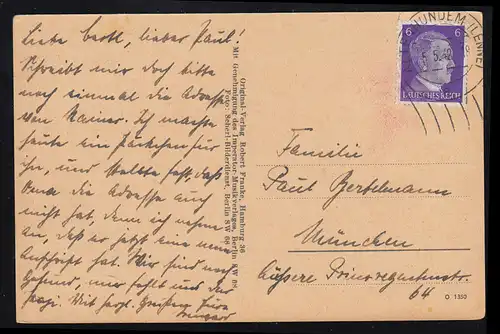 Liebe Bertl, lieber Paul!
Schreibt mir doch bitte
noch einmal die Adresse
von Rainer. Ich machte
heute ein Päckchen für
ihn, und stellte fest, daß
Oma die Adresse auch
nicht hat, denn ich nehme
an, daß er jetzt eine neue
Anschrift hat. Wir sind noch
gesund, nur fehlt uns der
Mit herzl. Grüßen Eure
Original-Verlag Robert Franke, Hamburg 36
Mit Genehmigung des Imperator-Musikverlages, Berlin SW 68
Foto: Scherl-Bilderdienst, Berlin SW 68
6 6
DEUTSCHES REICH
JUNDEM (LENNE)
Familie
Paul Bertelmann
München
Äußere Prinzregentenstr.
64
O 1353